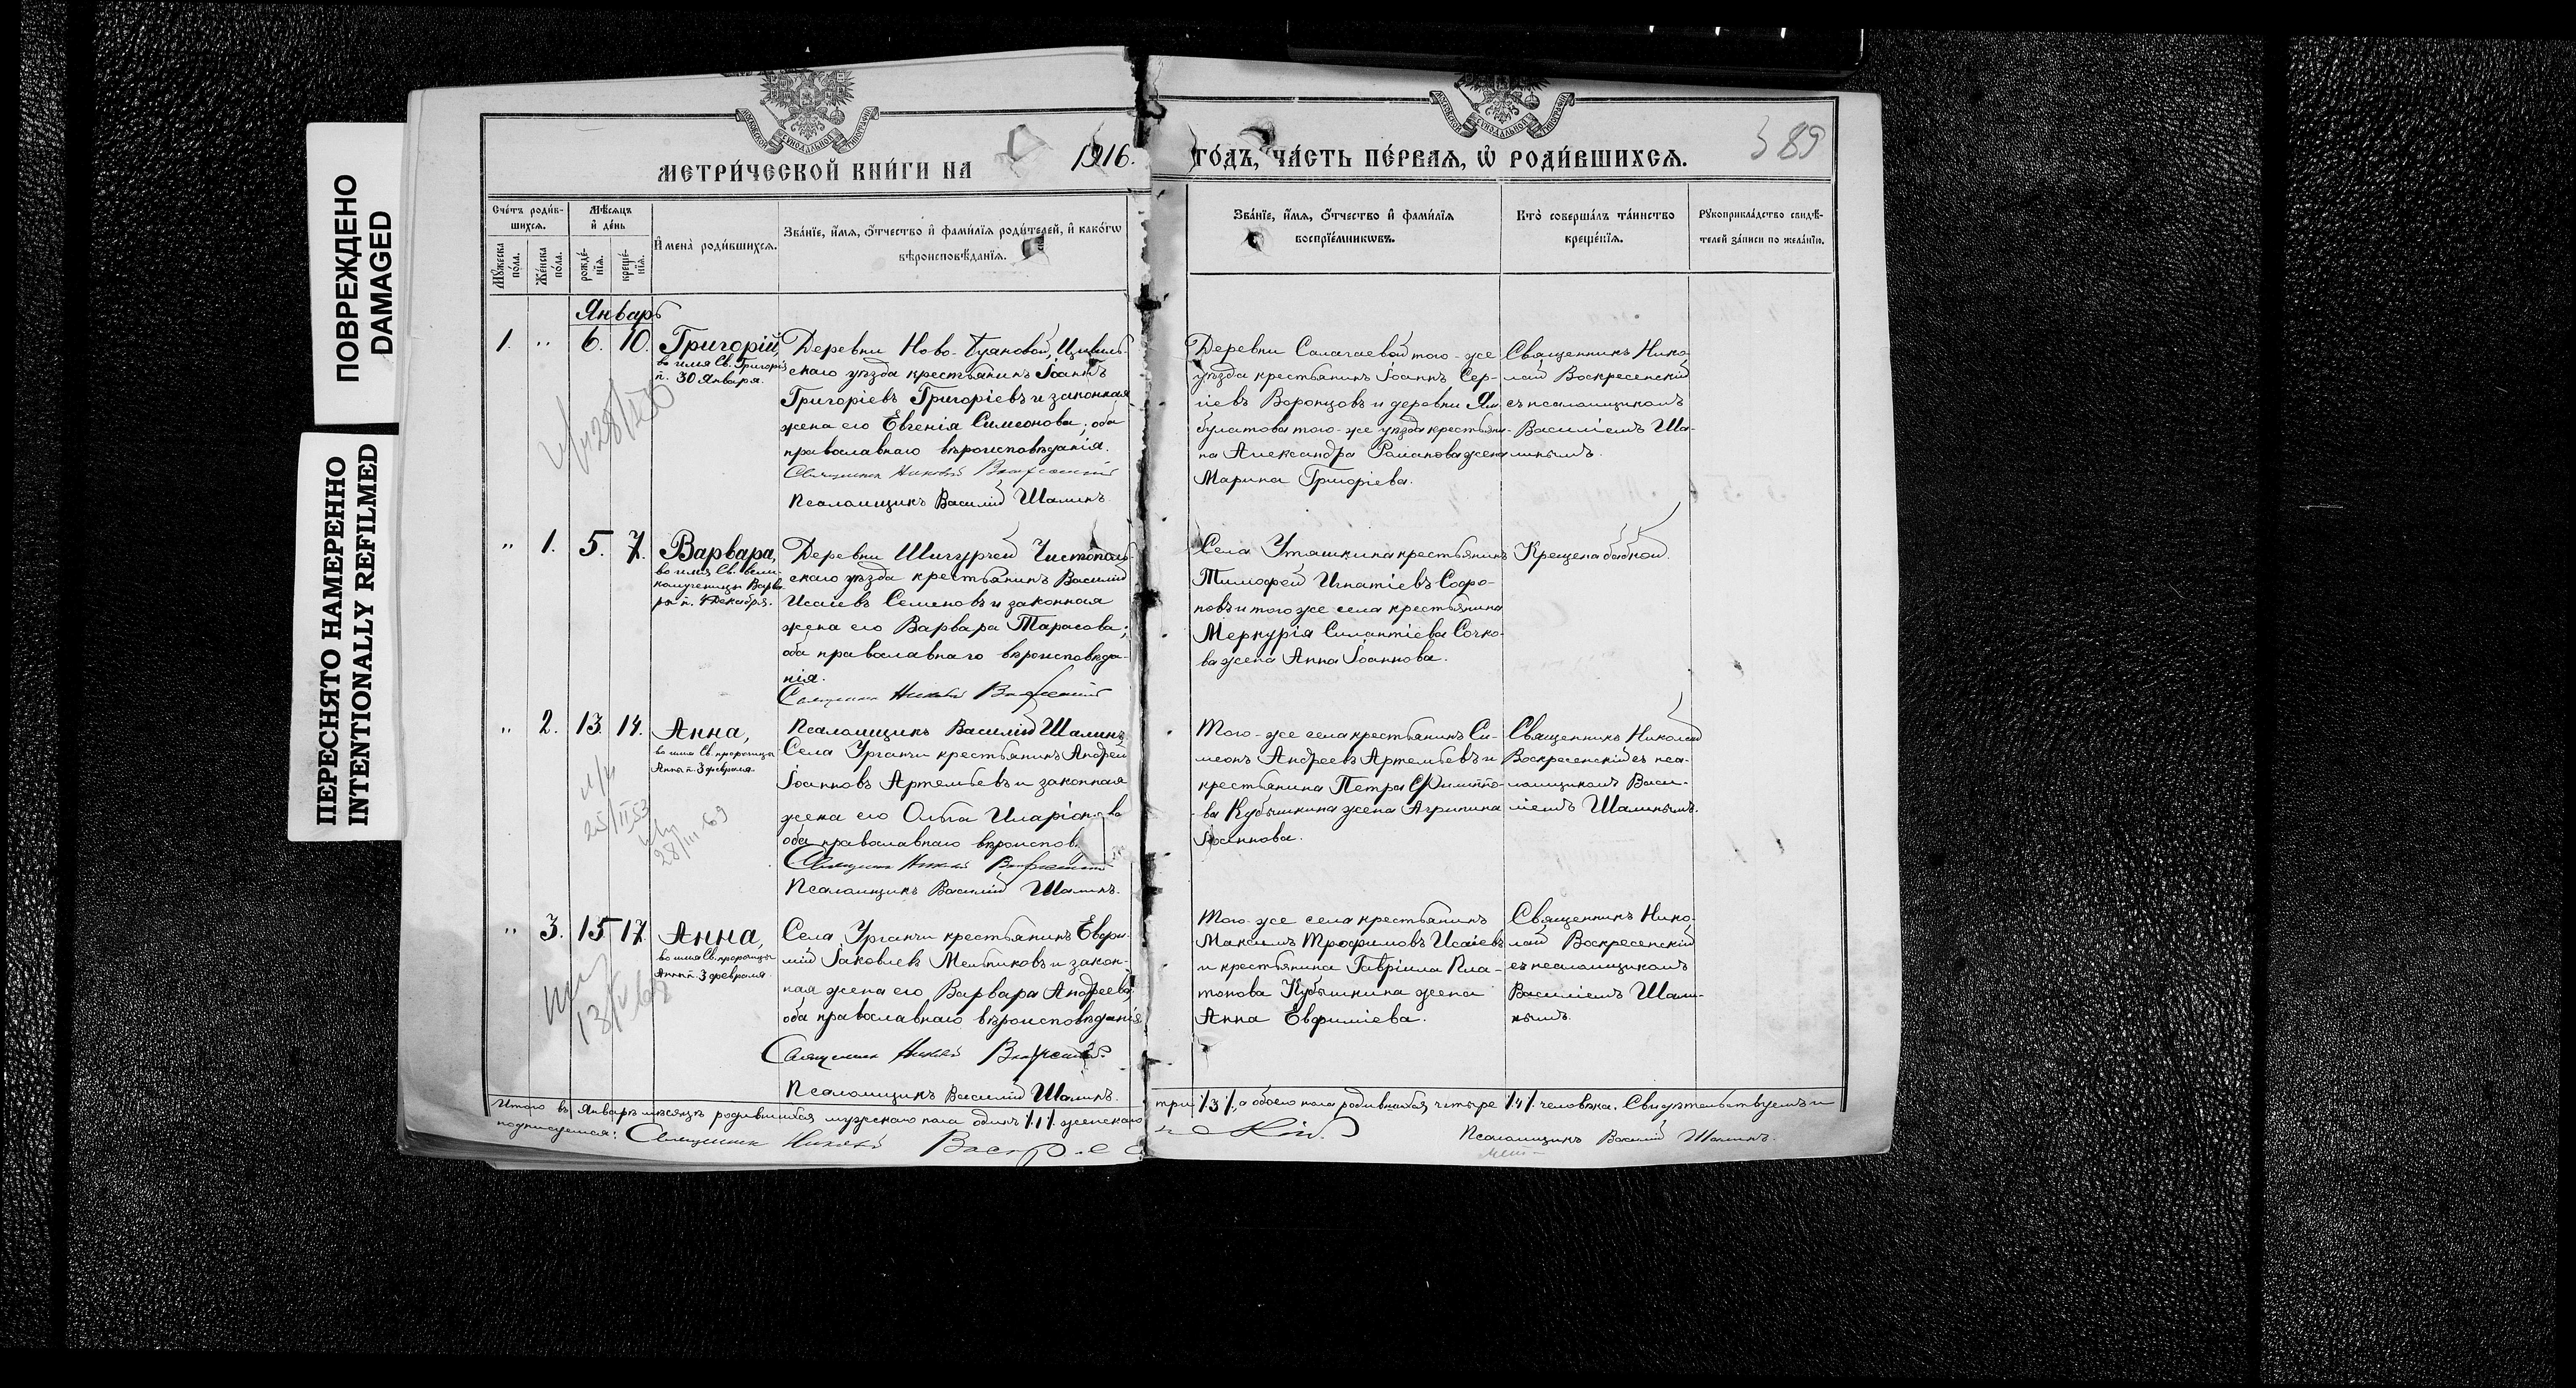 ПОВРЕЖДЕНО
DAMAGED
ПЕРЕСНЯТО НАМЕРЕННО
INTENTIONALLY REFILMED
МЕТРИ́ЧЕСКОЙ КНИ́ГИ НА 1916. ГО́ДЪ, ЧА́СТЬ ПЕ́РВАѦ, Ѡ҆ РОДИ́ВШИХСѦ.
389
Сче́тъ роди́в-
шихсѧ.
Мѣ́сѧцъ
и҆ де́нь
Мꙋ́жеска
по́ла.
Же́нска
по́ла.
рожде́-
нїѧ.
креще́-
нїѧ.
И҆мена̀ роди́вшихсѧ.
Зва́нїе, и҆́мѧ, ѻ҆́тчество и҆ фами́лїѧ роди́телей, и҆ како́гѡ
вѣроисповѣ́данїѧ.
Зва́нїе, и҆́мѧ, ѻ҆́тчество и҆ фами́лїѧ
воспрїе́мникѡвъ.
Кто̀ соверша́лъ та́инство
креще́нїѧ.
Рꙋкоприкла́дство свидѣ́-
телей за́писи по жела́нїю.
Январь
1. " 6. 10.
Григорій,
во имя Св. Григорія
п. 30 Января.
Деревни Ново-Буяновой, Цивиль-
скаго уѣзда крестьянинъ Іоаннъ
Григоріевъ Григоріевъ и законная
жена его Евгенія Симеонова; оба
православнаго вѣроисповѣданія.
Священникъ Николай Воскресенскій
Псаломщикъ Василій Шалинъ.
Деревни Салагаевой того-же
уѣзда крестьянинъ Іоаннъ Сер-
гіевъ Воронцовъ и деревни Ям-
булатова того-же уѣзда крестьяни-
на Александра Романова жена
Марина Григоріева.
Священникъ Нико-
лай Воскресенскій
съ псаломщикомъ
Василіемъ Ша-
линымъ.
" 1. 5. 7.
Варвара,
во имя Св. вели-
комученицы Варва-
ры п. 4 Декабря.
Деревни Шигурчей Чистополь-
скаго уѣзда крестьянинъ Василій
Исаевъ Семеновъ и законная
жена его Варвара Тарасова;
оба православнаго вѣроисповѣда-
нія.
Священникъ Николай Воскресенскій
Псаломщикъ Василій Шалинъ
Села Уташкина крестьянинъ
Тимофей Игнатіевъ Софро-
новъ и того же села крестьянина
Меркурія Силантіева Сочко-
ва жена Анна Іоаннова.
Крещена бабкой.
" 2. 13. 14.
Анна,
во имя Св. пророчицы
Анны п. 3 февраля.
Села Урганчи крестьянинъ Андрей
Іоанновъ Артемьевъ и законная
жена его Ольга Иларіонова
оба православнаго вѣроиспов
Священникъ Николай Воскресенскій
Псаломщикъ Василій Шалинъ.
Того-же села крестьянинъ Си-
меонъ Андреевъ Артемьевъ и
крестьянина Петра Филиппо-
ва Кубышкина жена Агрипина
Іоаннова.
Священникъ Николай
Воскресенскій съ пса-
ломщикомъ Васи-
ліемъ Шалинымъ.
" 3. 15 17.
Анна,
во имя Св. пророчицы
Анны п. 3 февраля.
Села Урганчи крестьянинъ Евфи-
мій Іаковлевъ Мельниковъ и закон-
ная жена его Варвара Андреева,
оба православнаго вѣроисповѣданія
Священникъ Николай Воскресенскій
Псаломщикъ Василій Шалинъ.
Того-же села крестьянинъ
Максимъ Трофимовъ Исаіевъ
и крестьянина Гавріила Пла-
тонова Кубышкина жена
Анна Евфиміева.
Священникъ Нико-
лай Воскресенскій
съ псаломщикомъ
Василіемъ Шали-
нымъ.
Итого въ Январѣ мѣсяцѣ родившихся мужескаго пола одинъ /1/ женскаго три /3/, а обоего пола родившихся четыре /4/ человѣка. Свидѣтельствуемъ и
подписуемся: Священникъ Николай Воскресенскій. Псаломщикъ Василій Шалинъ.